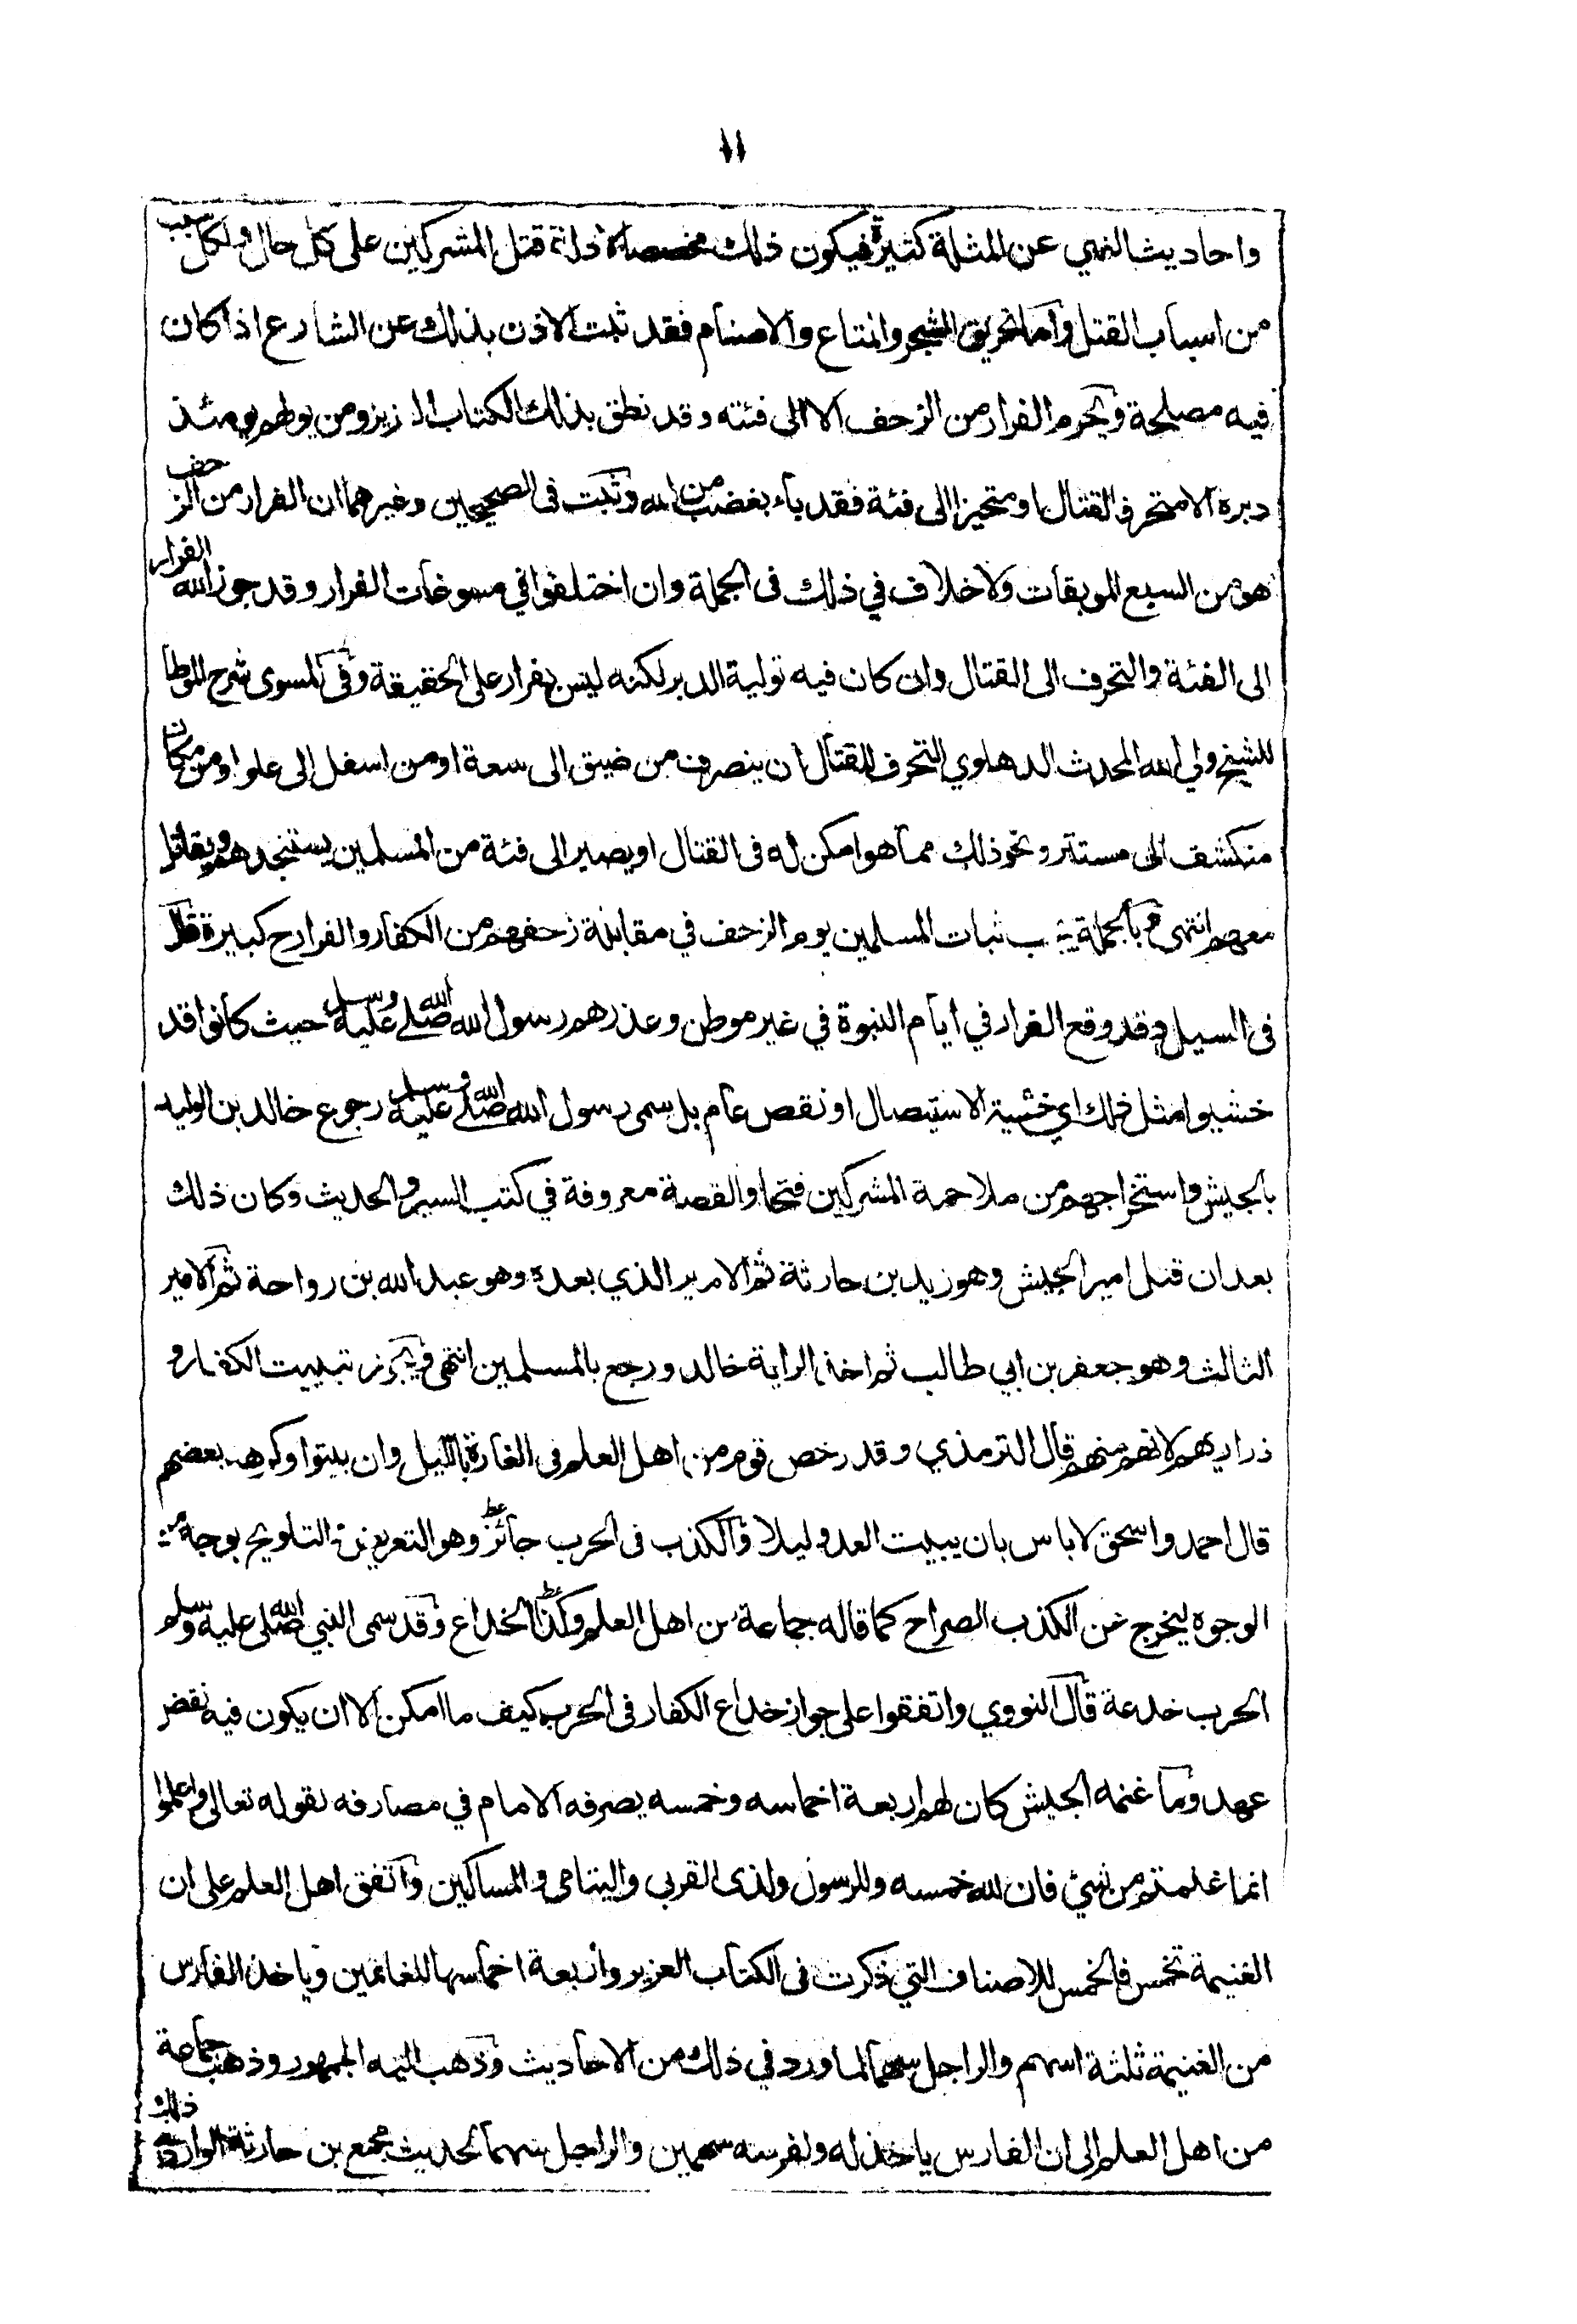 ١١
واحاديث النهي عن المثلة كثيرة فيكون ذلك مخصصا لادلة قتل المشركين على كل حال ولكل سبب
من اسباب القتل واما تحريق الشجر والمتاع والاصنام فقد ثبت الاذن بذلك عن الشارع اذا كان
فيه مصلحة ويحرم الفرار من الزحف الا الى فئته وقد نطق بذلك الكتاب العزيز ومن يولهم يومئذ
دبره الا متحرفا لقتال او متحيزا الى فئة فقد باء بغضب من الله وثبت فى الصحيحين وغيرهما ان الفرار من الزحف
هو من السبع الموبقات ولا خلاف في ذلك فى الجملة وان اختلفوا في مسوغات الفرار وقد جوز الله الفرار
الى الفئة والتحرف الى القتال وان كان فيه تولية الدبر لكنه ليس بفرار على الحقيقة وفى المسوى شرح الموطا
للشيخ ولي الله المحدث الدهلوي التحرف للقتال ان ينصرف من ضيق الى سعة او من اسفل الى علو او من مكان
منكشف الى مستتر ونحو ذلك مما هو امكن له فى القتال او يصير الى فئة من المسلمين يستنجدهم ويقاتل
معهم انتهى وبالجملة يجب ثبات المسلمين يوم الزحف في مقابلة زحفهم من الكفار والفرار ح كبيرة قال
فى السيل وقد وقع الفرار في ايام النبوة في غير موطن وعذرهم رسول الله صلى الله عليه وسلم حيث كانوا قد
خشيوا مثل ذلك اي خشية الاستيصال او نقص عام بل سمى رسول الله صلى الله عليه وسلم رجوع خالد بن الوليد
بالجيش واستخراجهم من ملاحمة المشركين فتحا والقصة معروفة في كتب السير والحديث وكان ذلك
بعد ان قتل امير الجيش وهو زيد بن حارثة ثم الامير الذي بعده وهو عبد الله بن رواحة ثم الامير
الثالث وهو جعفر بن ابي طالب ثم اخذ الراية خالد ورجع بالمسلمين انتهى ويجوز تبييت الكفار و
ذراريهم لانهم منهم قال الترمذي وقد رخص قوم من اهل العلم فى الغارة بالليل وان يبيتوا وكرهه بعضهم
قال احمد واسحق لا باس بان يبيت العدو ليلا والكذب فى الحرب جائز وهو التعريض والتلويح بوجه من
الوجوه ليخرج عن الكذب الصراح كما قاله جماعة من اهل العلم وكذا الخداع وقد سمى النبي صلى الله عليه وسلم
الحرب خدعة قال النووي واتفقوا على جواز خداع الكفار فى الحرب كيف ما امكن الا ان يكون فيه نقض
عهد وما غنمه الجيش كان لهم اربعة اخماسه وخمسه يصرفه الامام في مصارفه لقوله تعالى واعلموا
انما غنمتم من شيئ فان لله خمسه وللرسول ولذى القربى واليتامى والمساكين واتفق اهل العلم على ان
الغنيمة تخمس فالخمس للاصناف التي ذكرت فى الكتاب العزيز واربعة اخماسها للغانمين وياخذ الفارس
من الغنيمة ثلثة اسهم والراجل سهما لما ورد في ذلك من الاحاديث وذهب اليه الجمهور وذهب جماعة
من اهل العلم الى ان الفارس ياخذ له ولفرسه سهمين والراجل سهما لحديث مجمع بن حارثة الوارد ذلك